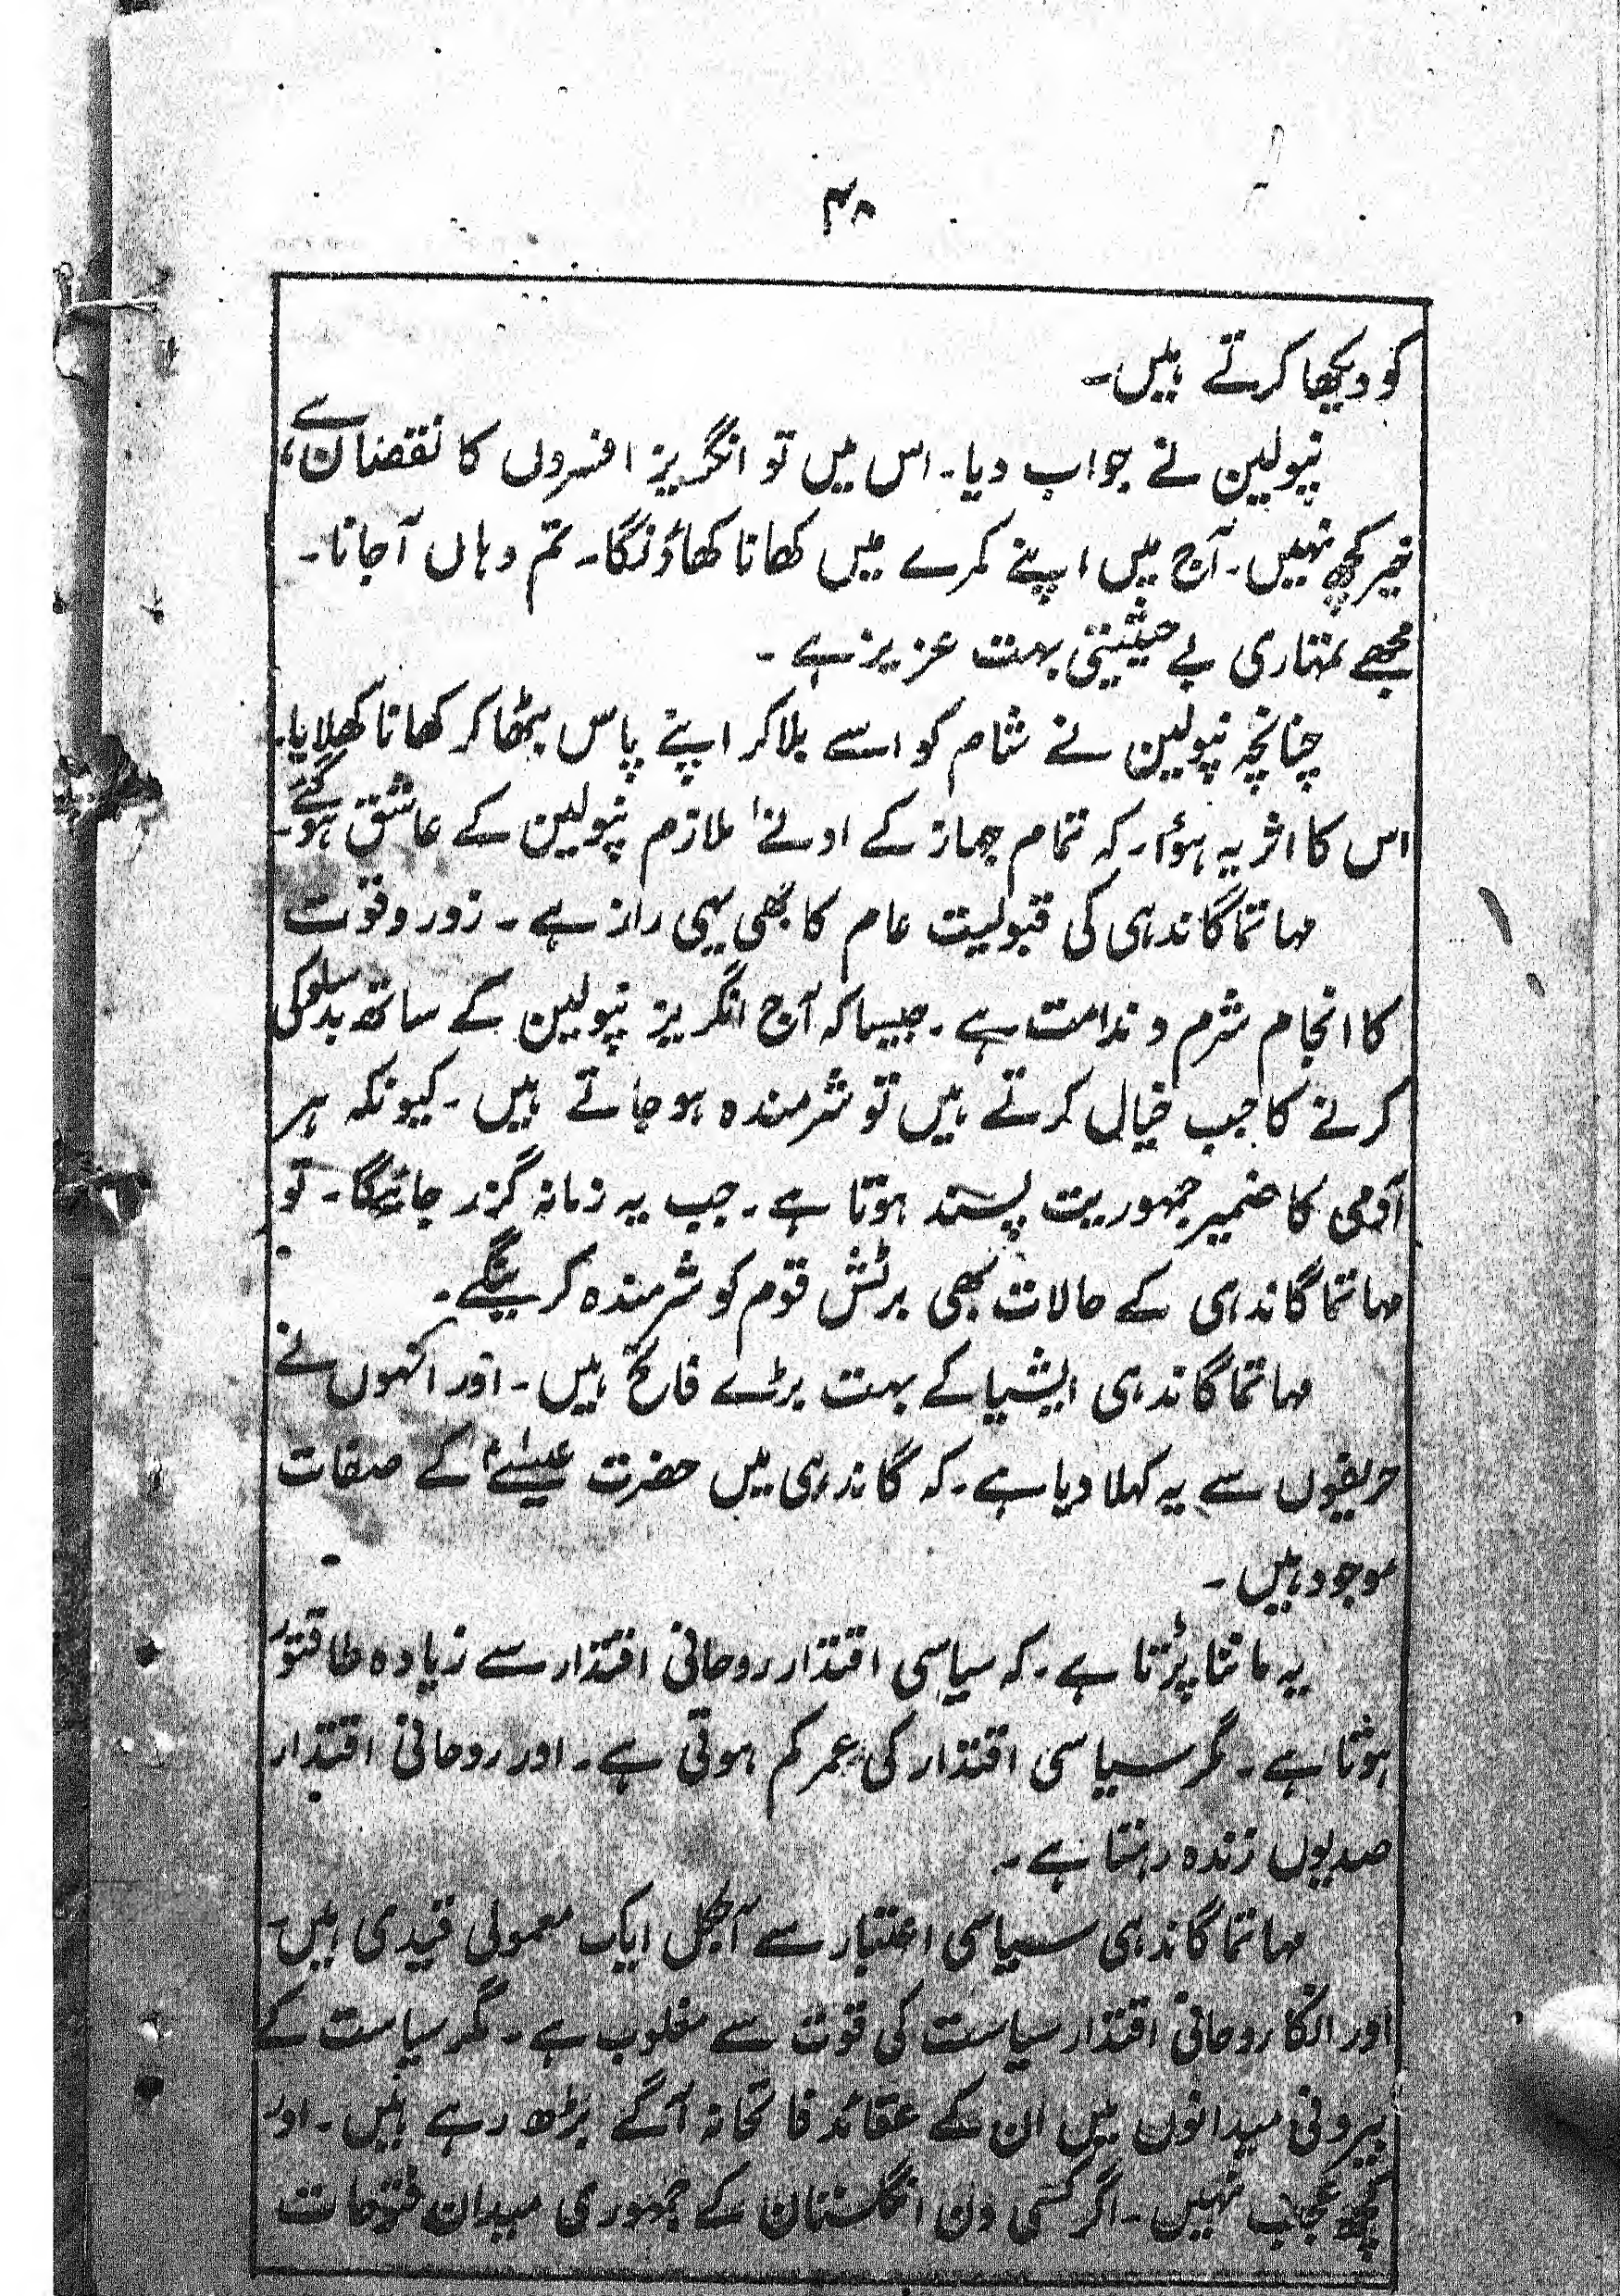 ۳۸
کو دیکھا کرتے ہیں۔
نپولین نے جواب دیا۔ اس میں تو انگریز افسروں کا نقصان ہے،
خیر کچھ نہیں۔ آج میں اپنے کمرے میں کھانا کھاؤنگا۔ تم وہاں آجانا۔
مجھے تمہاری بے حیثیتی بہت عزیز ہے۔
چنانچہ نپولین نے شام کو اسے بلاکر اپنے پاس بٹھا کر کھانا کھلایا۔
اس کا اثر یہ ہؤا۔ کہ تمام جہاز کے ادنےٰ ملازم نپولین کے عاشق ہوگئے۔
مہاتما گاندہی کی قبولیت عام کا بھی یہی راز ہے۔ زور و قوت
کا انجام شرم و ندامت ہے۔ جیسا کہ آج انگریز نپولین کے ساتھ بدسلوکی
کرنے کا جب خیال کرتے ہیں تو شرمندہ ہو جاتے ہیں۔ کیونکہ ہر
آدمی کا ضمیر جمہوریت پسند ہوتا ہے۔ جب یہ زمانہ گزر جائیگا۔ تو
مہاتما گاندہی کے حالات بھی برٹش قوم کو شرمندہ کرینگے۔
مہاتما گاندہی ایشیا کے بہت بڑے فاتح ہیں۔ اور انہوں نے
حریفوں سے یہ کہلا دیا ہے۔ کہ گاندہی میں حضرت عیسےٰؑ کے صفات
موجود ہیں۔
یہ ماننا پڑتا ہے۔ کہ سیاسی اقتدار روحانی اقتدار سے زیادہ طاقتور
ہوتا ہے۔ مگر سیاسی اقتدار کی عمر کم ہوتی ہے۔ اور روحانی اقتدار
صدیوں زندہ رہتا ہے۔
مہاتما گاندہی سیاسی اعتبار سے آجکل ایک معمولی قیدی ہیں۔
اور انکا روحانی اقتدار سیاست کی قوت سے مغلوب ہے۔ مگر سیاست کے
بیرونی میدانوں میں ان کے عقائد فاتحانہ آگے بڑھ رہے ہیں۔ اور
کچھ عجب نہیں۔ اگر کسی دن انگلستان کے جمہوری میدان فتوحات